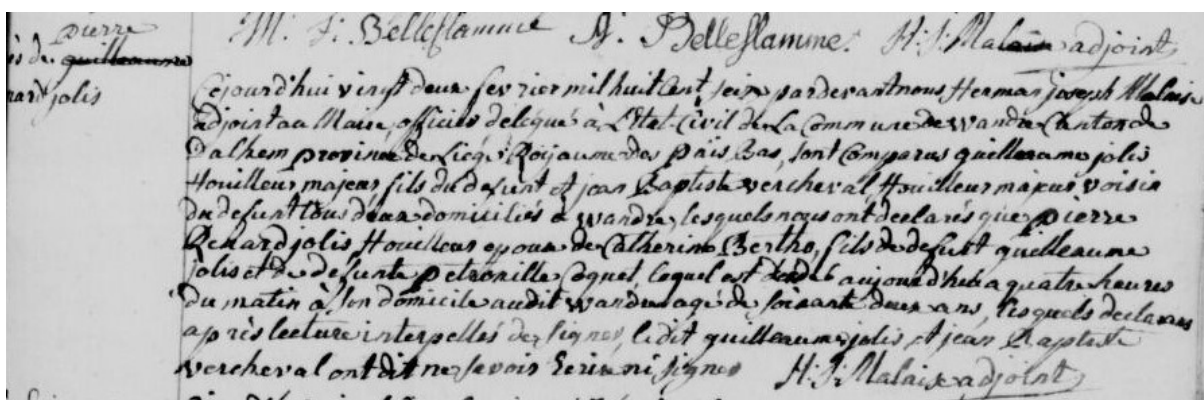 M. J. Belleflamme A. Belleflamme. H: J: Malaise adjoint
pierre
ès de guilleaume
nard jolis
Cejourd'hui vingt deux fevrier mil huit Cent seize pardevant nous Herman joseph Malaise
adjoint au Maire, officier délégué à L'Etat-Civil de La Commune de wandre Canton de
Dalhem province de Liege Roijaume des païs Bas, sont Comparus guilleaume jolis
Houilleur majeur fils du defunt et jean Baptiste vercheval Houilleur majeur voisin
du defunt tous deux domiciliés à wandre, lesquels nous ont declarés que pierre
Renard jolis Houilleur epoux de Catherine Bertho, fils de defunt guilleaume
jolis et de defunte petronille Coquet, lequel est aujourd'hui a quatre heures
du matin à son domicile audit wandre agé de soixante deux ans, lesquels declarans
après lecture interpellés de signer, ledit guilleaume jolis et jean Baptiste
vercheval ont dit ne savoir Ecrire ni signer H: J: Malaise adjoint